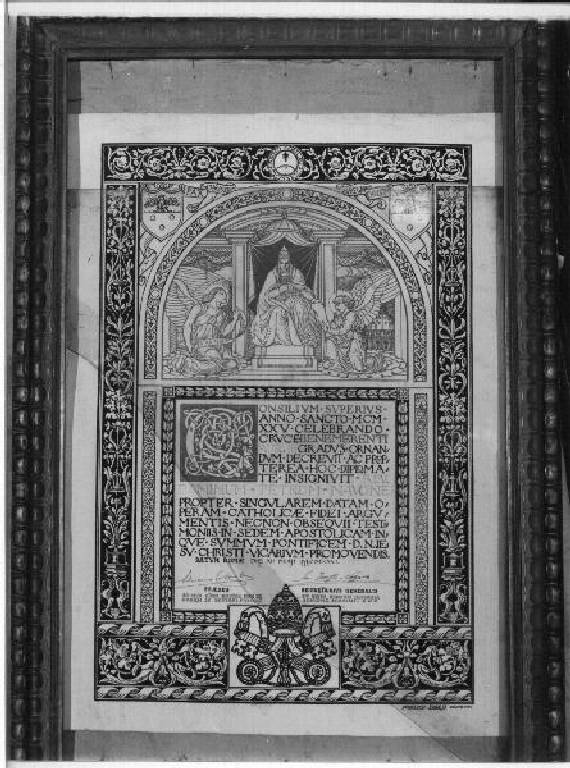 CONSILIVM · SVPERIVS ·
ANNO · SANCTO · MCM ·
XXV · CELEBRANDO ·
CRVCE BENEMERENTI
GRADVS · ORNAN-
DVM · DECREVIT · AC PRÆ-
TEREA · HOC · DIPLOMA-
TE · INSIGNIVIT ·
PROPTER · SINGVLAREM · DATAM · O-
PERAM · CATHOLICÆ · FIDEI · ARGV-
MENTIS · NECNON · OBSEQVII · TESTI-
MONIIS · IN · SEDEM · APOSTOLICAM · IN-
QVE · SVMMVM · PONTIFICEM · D. N. JE-
SV · CHRISTI · VICARIVM · PROMOVENDIS.
DATVM ROMÆ DIE
PRAESES SECRETARIVS GENERALIS